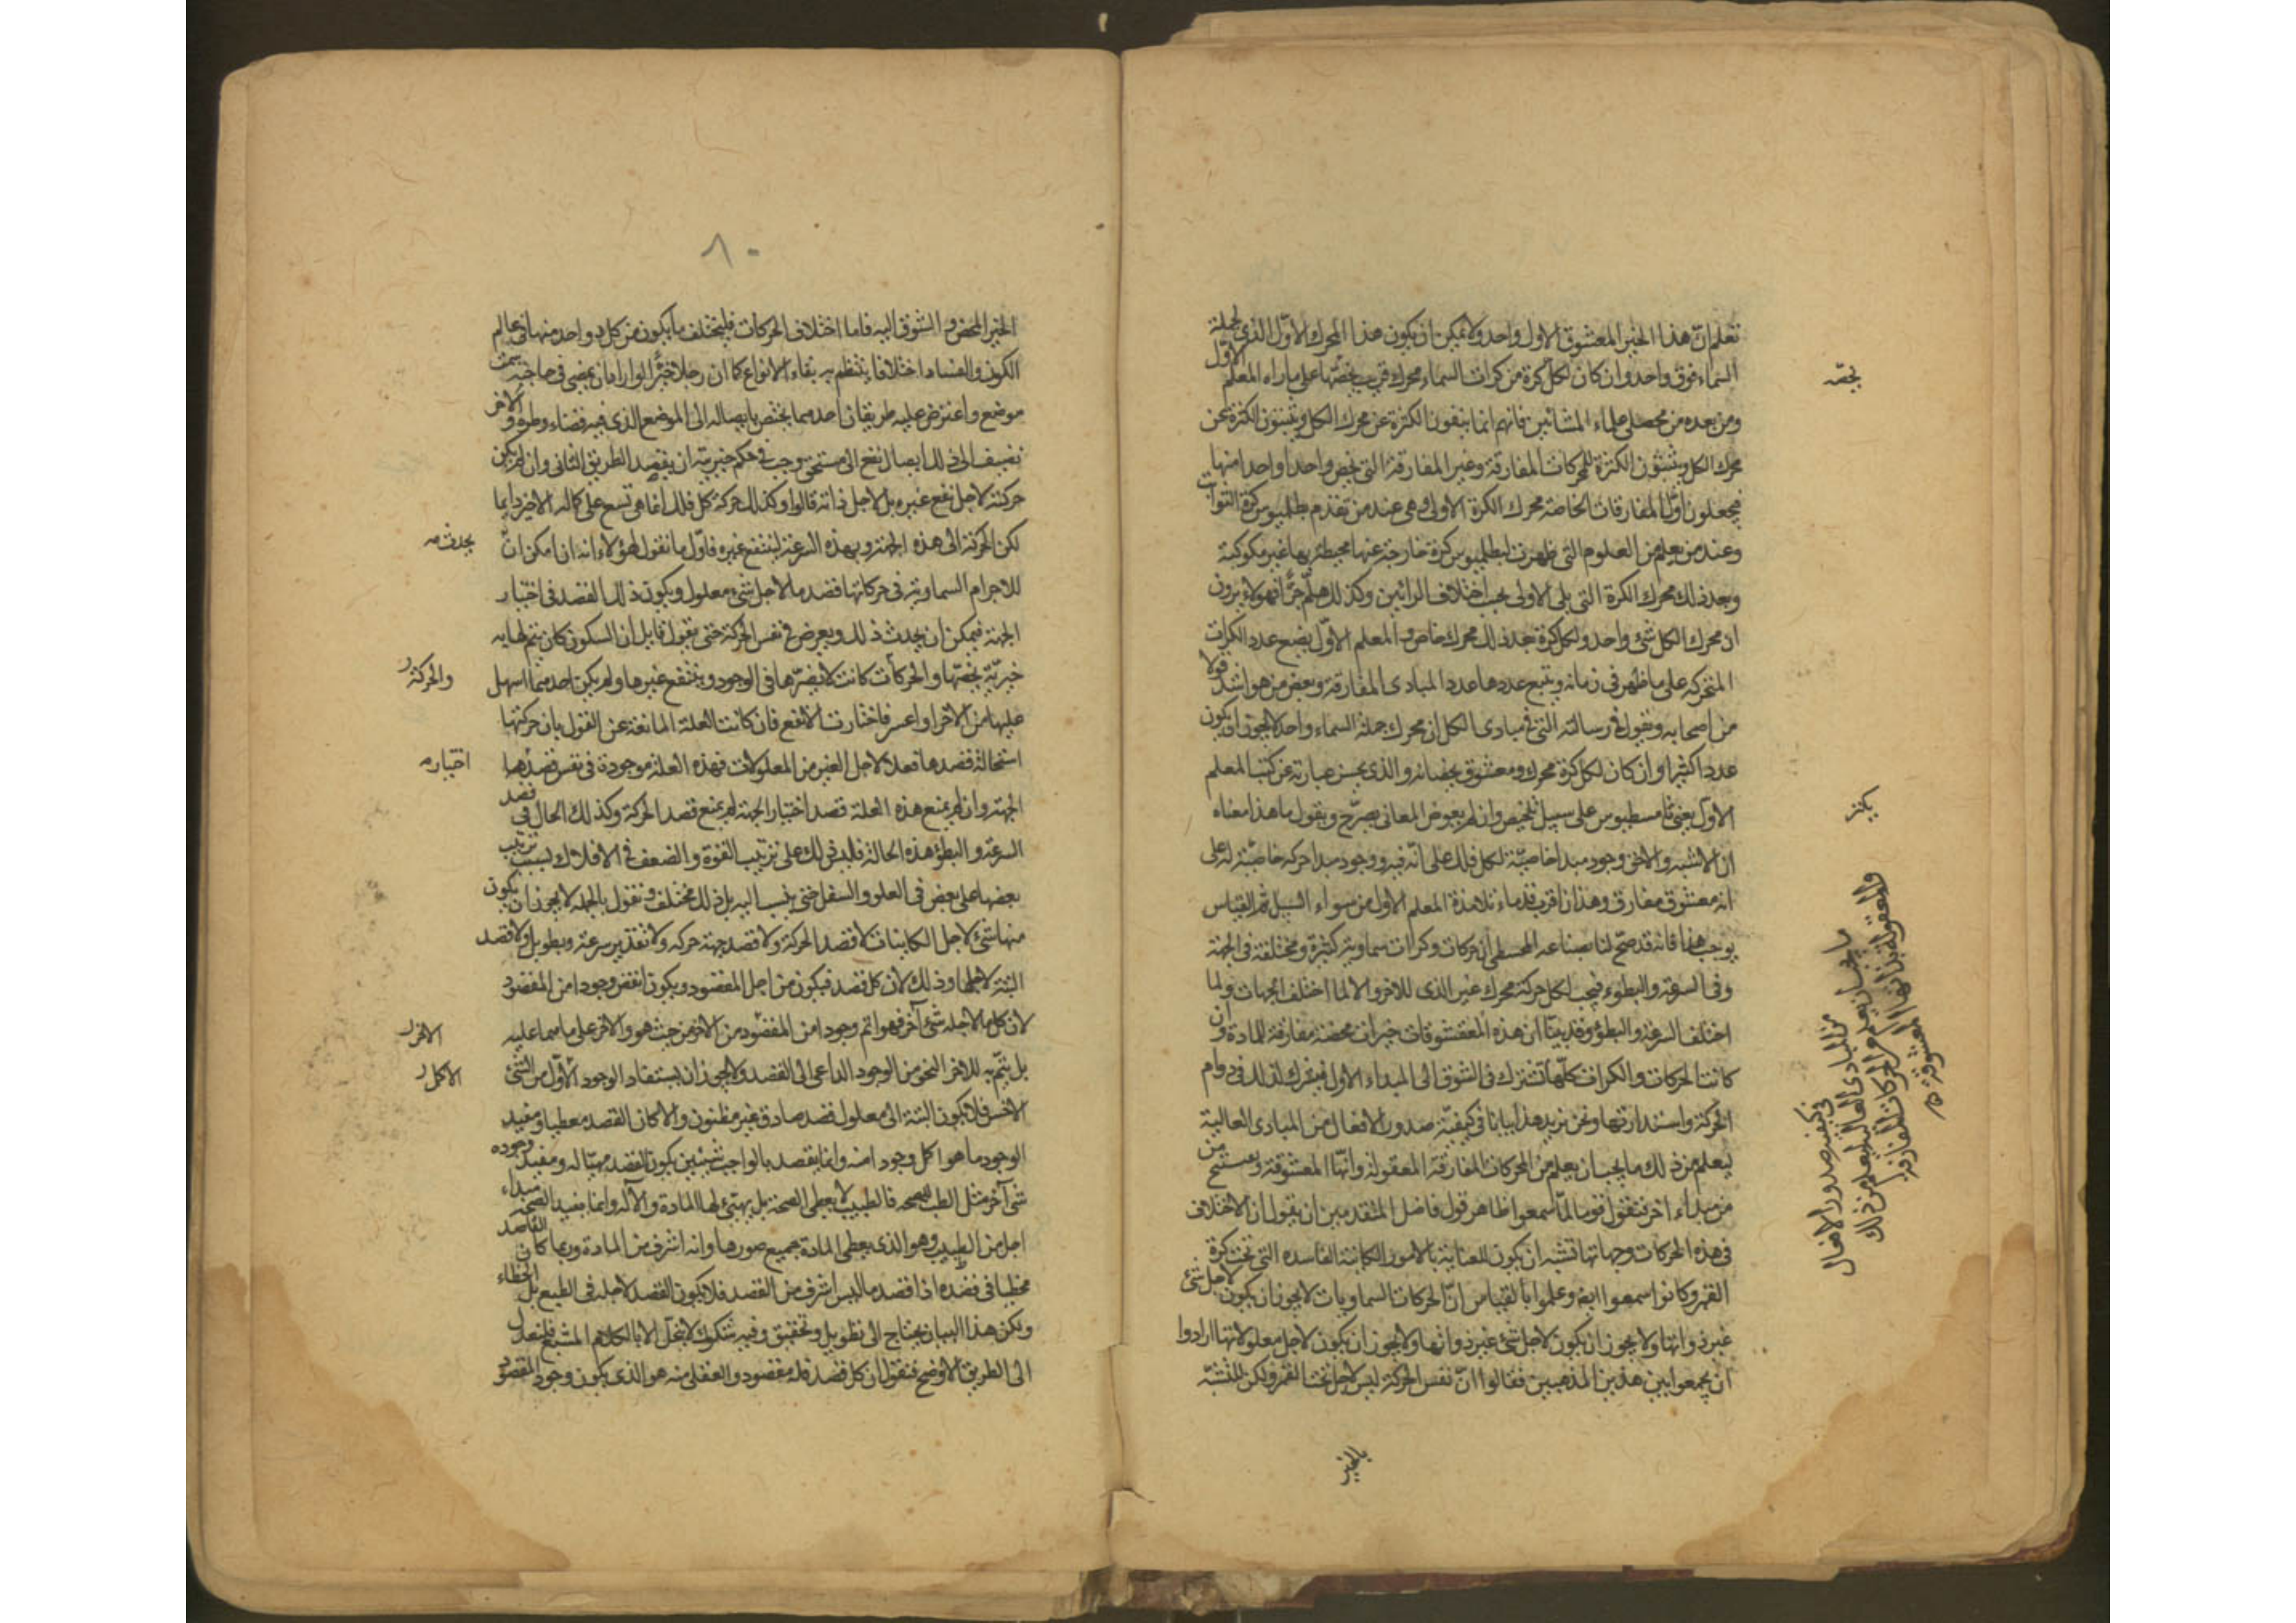 تعلم ان هذا الخير المعشوق الاول واحد ولا يمكن ان يكون هذا المحرك الاول الذي لجملة
السماء فوق واحد وان كان لكل كرة من كرات السماء محرك قريب يخصها على ما راه المعلم الاول
ومن بعده من محصلي علماء المشائين فانهم انما ينفون الكثرة عن محرك الكل ويثبتون الكثرة عن
محرك الكل ويثبتون الكثرة للمحركات المفارقة وغير المفارقة التي تخص واحدا واحدا منها
فيجعلون اول المفارقات الخاصة محرك الكرة الاولى وهي عند من تقدم بطلميوس كرة الثوابت
وعند من يعلم من العلوم التي ظهرت لبطلميوس كرة خارجة عنها محيطة بها غير مكوكبة
وبعد ذلك محرك الكرة التي يلي الاولى بحسب اختلاف الرائين وكذلك هلم جرا فهولاء يرون
ان محرك الكل شئ واحد ولكل كرة بعد ذلك محرك خاص والمعلم الاول يضع عدد الكرات
المتحركة على ما ظهر في زمانه ويتبع عددها عدد المبادى المفارقة وبعض من هو اشد قولا
من اصحابه ويقول في رسالته التي في مبادى الكل ان محرك جملة السماء واحد لا يجوز ان يكون
عددا كثيرا وان كان لكل كرة محرك ومعشوق يخصانه والذي يحسن عبارته عن كتب المعلم
الاول يعني ثامسطيوس على سبيل تلخيص وان لم يعوض المعاني يصرح ويقول ما هذا معناه
ان الاشبه والاحق وجود مبدا خاصية لكل فلك على انه فيه ووجود مبدا حركة خاصية له على
انه معشوق مفارق وهذان اقرب قدماء تلامذة المعلم الاول من سواء السبيل ثم القياس
يوجب هذا فانه قد صح لنا بصناعة المجسطي ان حركات وكرات سماوية كثيرة ومختلفة في الجهة
وفي السرعة والبطوء فيجب لكل حركة محرك غير الذي للاخر والا لما اختلف الجهات ولما
اختلف السرعة والبطؤ وقد بينا ان هذه المعتشوقات خيرات محضة مفارقة للمادة وان
كانت الحركات والكرات كلها تشترك في الشوق الى المبداء الاول فيشترك لذلك في دوام
الحركة واستدارتها ونحن نزيد هذا بيانا في كيفية صدور الافعال من المبادى العالية
ليعلم من ذلك ما يجب ان يعلم من المحركات المفارقة المعقولة وانها المعشوقة ويستتح من
من مبداء اخر فنقول قوما لما سمعوا ظاهر قول فاضل المتقدمين ان يقول ان الاختلاف
في هذه الحركات وجهاتها تشبه ان يكون للعناية بالامور الكاينة الفاسده التي تحت كرة
القمر وكانوا سمعوا ايضا وعلموا بالقياس ان الحركات السماويات لا يجوز ان يكون لاجل شئ
غير ذواتها ولا يجوز ان يكون لاجل شئ غير ذواتها ولا يجوز ان يكون لاجل معلولاتها ارادوا
ان يجمعوا بين هذين المذهبين فقالوا ان نفس الحركة ليس لاجل تحت القمر ولكن للتشبه
بالخير
يخصه
يكثر
في كيفيه صدور الافعال
من المبادى العاليه ليعلم من ذلك
ما يجب ان يعلم من المحركات المفارقه
والمعقولة بذاتها المعشوقه
٨٠
الخير المحض والشوق اليه فاما اختلاف الحركات فليختلف ما يكون من كل واحد منها في عالم
الكون والفساد اختلافا ينتظم به بقاء الانواع كما ان رجلا خيرا لو اراد ان يمضى في حاجته سمت
موضع واعترض عليه طريقان احدهما يختص بايصاله الى الموضع الذي فيه قضاء وطره والاخر
يضيف الى ذلك ايصال نفع الى مستحق وجب في حكم خيريته ان يقصد الطريق الثاني وان لم يكن
حركته لاجل نفع غيره بل لاجل ذاته قالوا وكذلك حركة كل فلك انما هي تسع على كماله الاخير دايما
لكن الحركة الى هذه الجهة وبهذه السرعة لينتفع غيره فاول ما نقول لهؤلاء انه ان امكن ان
للاجرام السماوية في حركاتها قصد ما لاجل شئ معلول ويكون ذلك القصد في اختيار
الجهة فيمكن ان يحدث ذلك ويعرض في نفس الحركة حتى يقول قايل ان السكون كان يتم لها به
خيرية تخصها والحركات كانت لا يضرها في الوجود وينتفع غيرها ولم يكن احدهما اسهل
عليها من الاخر او اعسر فاختارت الانفع فان كانت العلة المانعة عن القول بان حركتها
استحالة قصدها فعلا لاجل الغير من المعلولات فهذه العلة موجودة في نفس قصدها
الجهة وان لم يمنع هذه العلة قصد اختيار الجهة لم يمنع قصد الحركة وكذلك الحال في قصد
السرعة والبطؤ هذه الحالة فليس ذلك على ترتيب القوة والضعف في الافلاك بسبب ترتيب
بعضها على بعض في العلو والسفل حتى ينسب اليه بل ذلك مختلف ونقول بالجملة لا يجوز ان يكون
منها شئ لاجل الكاينات لا قصد الحركة ولا قصد جهة حركه ولا تقدير سرعة وبطو بل ولا قصد
البتة لاجلها وذلك لان كل قصد فيكون من اجل المقصود ويكون انقص وجودا من المقصود
لان كل ما لاجله شئ آخر فهو اتم وجودا من المقصود من الاخر من حيث هو والاخر على ما هما عليه
بل يتم به للاخر النحو من الوجود الداعى الى القصد ولا يجوز ان يستفاد الوجود الاول من الشئ
الاخس فلا يكون البتة الى معلول قصد صادق غير مظنون والا كان القصد معطيا ومفيد
الوجود ما هو اكل وجودا منه وانما يقصد بالواجب شيئين يكون القصد مهيئا له ومفيد وجوده
شئ آخر مثل الطب للصحه فالطبيب لا يعطى الصحة بل يهيئ لها المادة والآله وانما يفيد الصحة مبداء
اجل من الطبيب وهو الذى يعطى المادة جميع صورها وانه اشرف من المادة وربما كان القاصد
مخطيا في قصده اذا قصد ما ليس اشرف من القصد فلا يكون القصد لاجله في الطبع بل الخطاء
ولكن هذا البيان يحتاج الى تطويل وتحقيق وفيه شكوك لا ينحل الا بالكلام المشبع فلنعدل
الى الطريق الاوضح فنقول ان كل قصد فله مقصود والعقلى منه هو الذى يكون وجود المقصود
يحدث
والحركة
اختيار
الاخر
الاكل